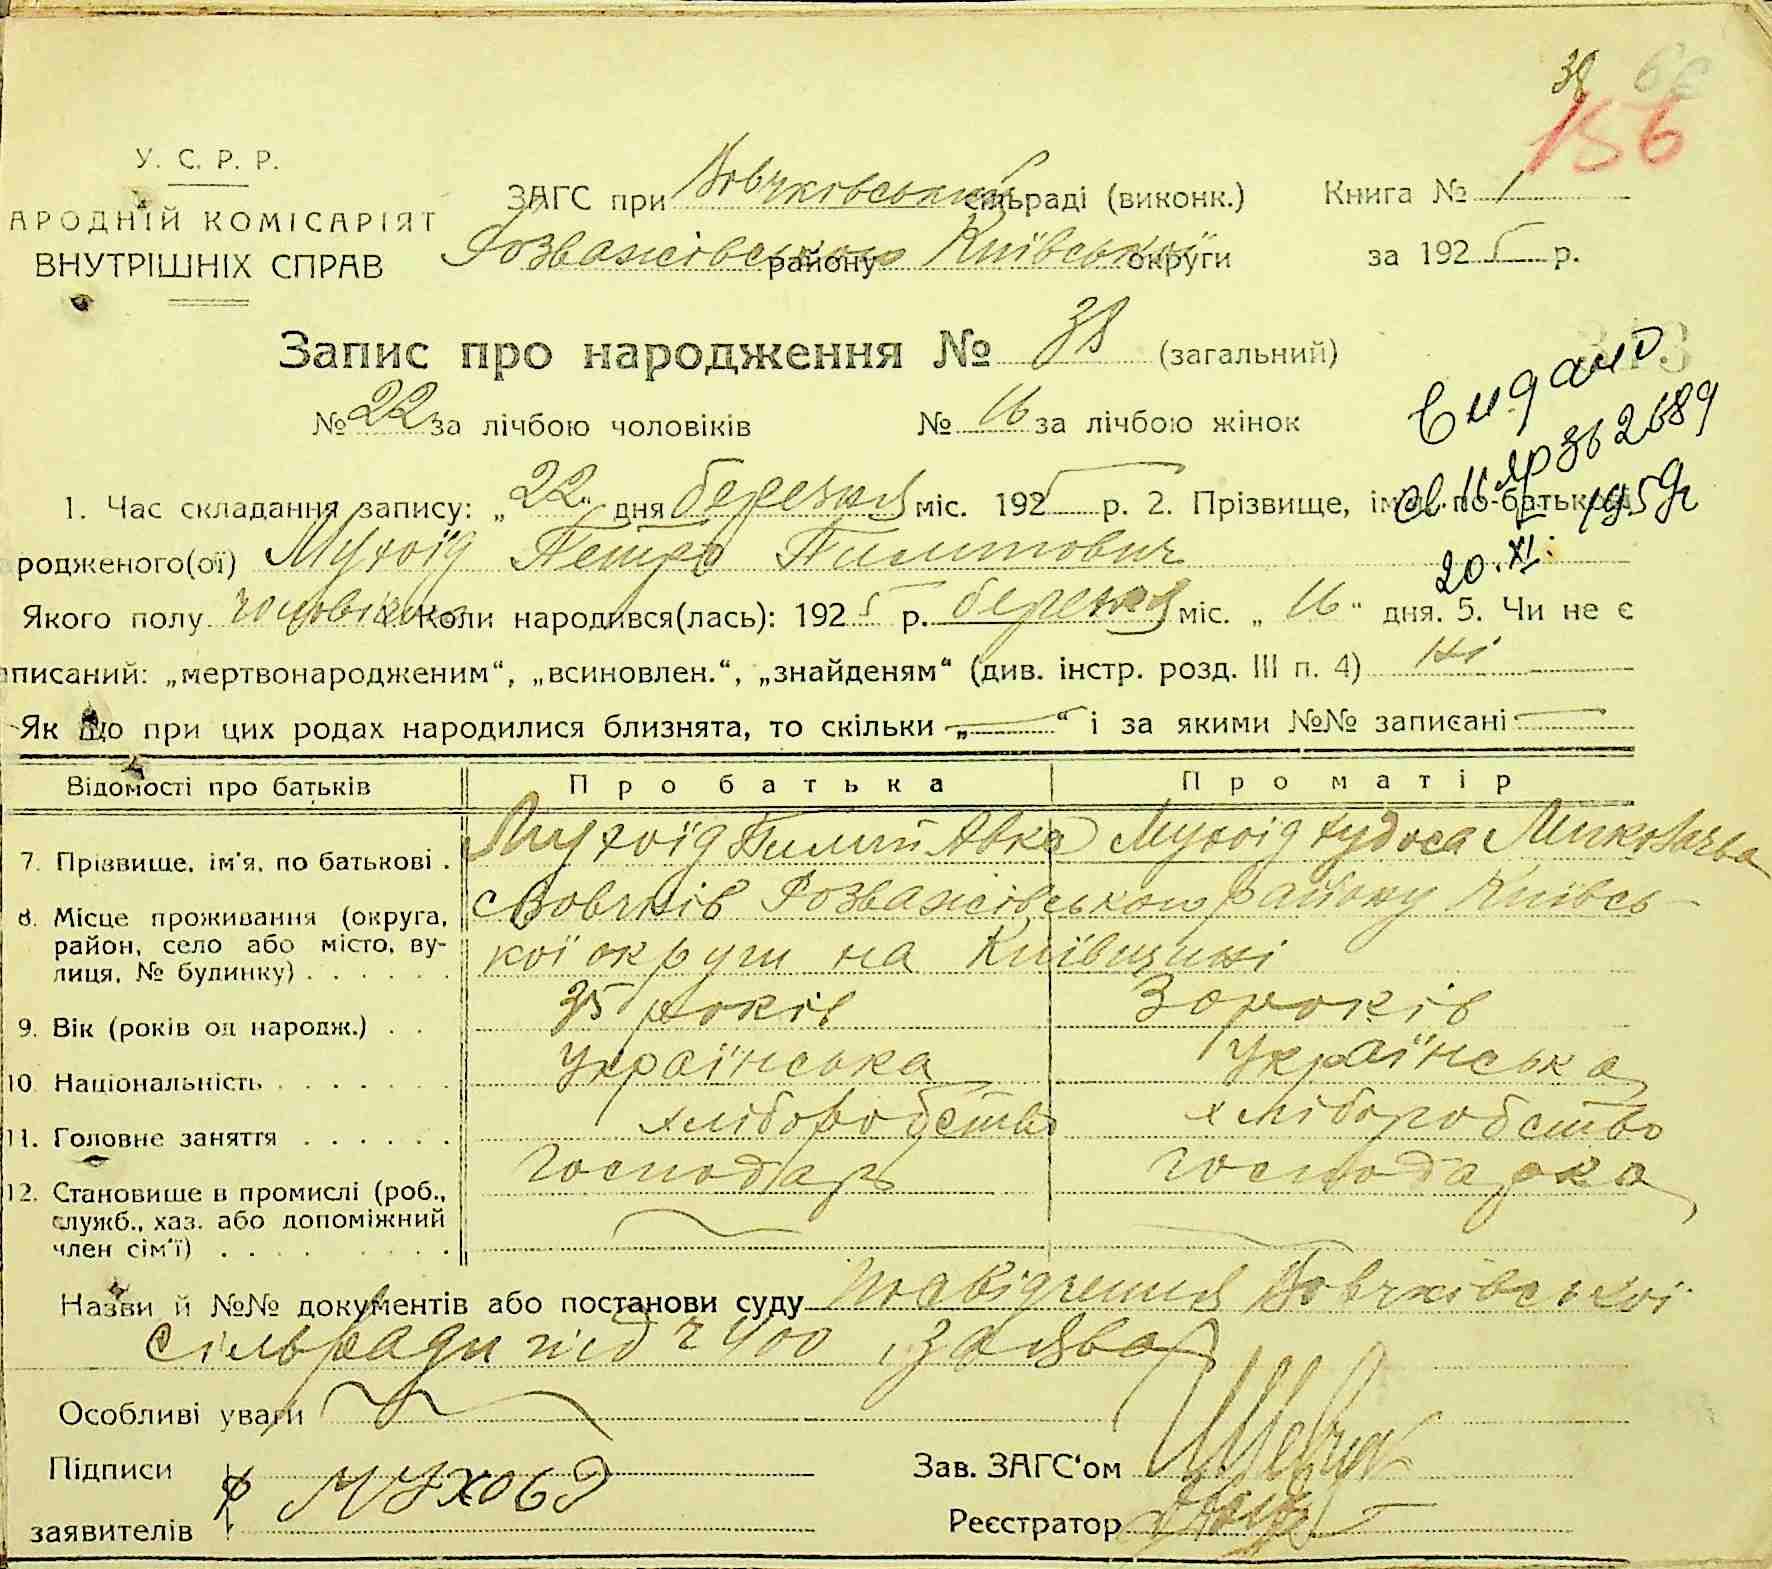 38
156
У. С. Р. Р.
АРОДНІЙ КОМІСАРІЯТ
ВНУТРІШНІХ СПРАВ
ЗАГС при Вовчківській сільраді (виконк.) Книга № 1
Розважівського району Київської округи за 1925 р.
Запис про народження № 38 (загальний)
№ 22 за лічбою чоловіків № 16 за лічбою жінок
видано
св. 2689
20.XI. 1959р
1. Час складання запису: „22" дня березня міс. 1925 р. 2. Прізвище, ім'я, по-батькові
родженого(ої) Мухоїд Петро Пилипович
Якого полу чоловік Коли народився(лась): 1925 р. березня міс. „16" дня. 5. Чи не є
аписаний: „мертвонародженим", „всиновлен.", „знайденям" (див. інстр. розд. III п. 4) ні
Як що при цих родах народилися близнята, то скільки „—" і за якими №№ записані —
Відомості про батьків Про батька Про матір
7. Прізвище, ім'я, по батькові . Мухоїд Мухоїд
8. Місце проживання (округа, район, село або місто, вулиця, № будинку) . . . . . . с Вовчків Розважівського району Київсь-
кої округи на Київщині
9. Вік (років од народж.) . . 35 років 30 років
10. Національність . . . . . . . Українська Українська
11. Головне заняття . . . . . . хліборобство хліборобство
12. Становище в промислі (роб., служб., хаз. або допоміжний член сім'ї) . . . . . . . . господарь господарка
Назви й №№ документів або постанови суду посвідчення Вовчківської
сільради під ч 400, заява
Особливі уваги
Підписи
заявителів
Зав. ЗАГС'ом
Реєстратор